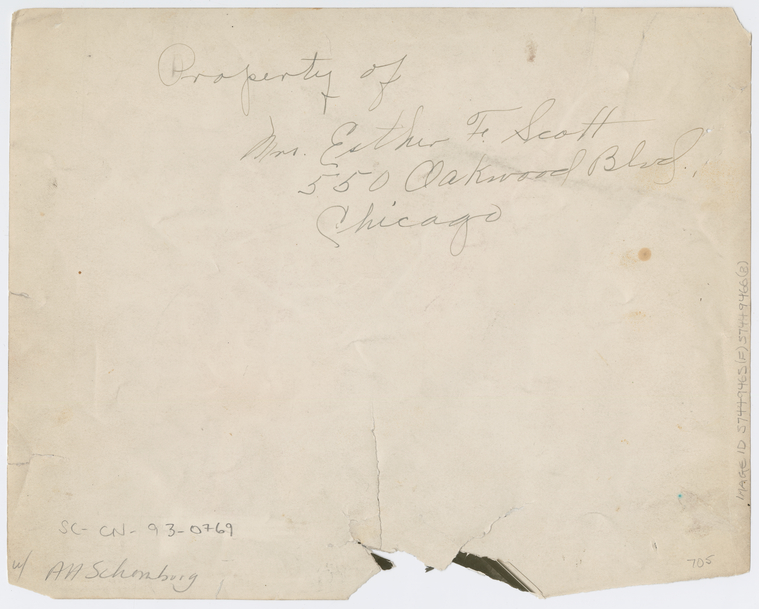 Property of
Mrs. Esther F. Scott
550 Oakwood Blvd.,
Chicago
SC-CN-93-0769
w/ AA Schomburg
705
IMAGE ID 57449465(F) 57449466(B)